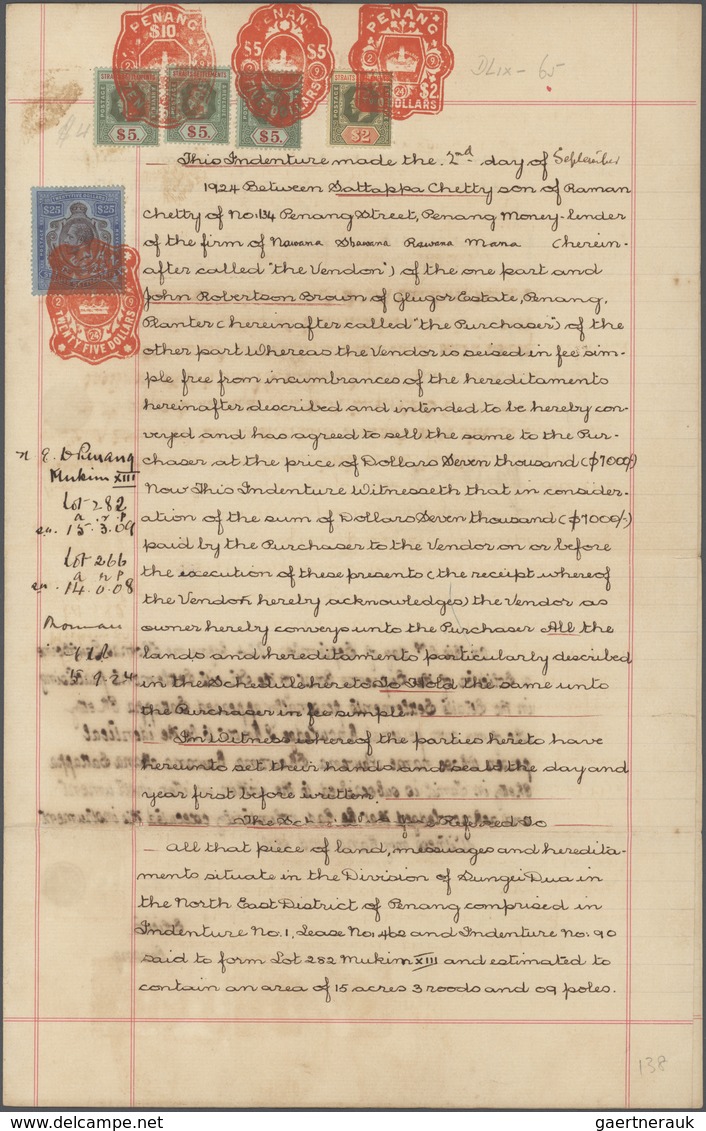 PENANG PENANG PENANG
$10 $5 $5 2 9 24 $2.
DOLLARS
DLIX - 65
STRAITS SETTLEMENTS STRAITS
POSTAGE
$5. $5. $5. $2
This Indenture made the 2nd day of September
1924 Between Sattappa Chetty son of Raman
Chetty of No: 134 Penang Street, Penang Money-lender
of the firm of Nawana Shawana Rawana Mana (herein-
after called "the Vendor") of the one part and
John Robertson Brown of Glugor Estate, Penang,
Planter (hereinafter called "the Purchaser") of the
other part Whereas the Vendor is seised in fee sim-
ple free from incumbrances of the hereditaments
hereinafter described and intended to be hereby con-
veyed and has agreed to sell the same to the Pur-
chaser at the price of Dollars Seven thousand ($7000/-)
Now This Indenture Witnesseth that in consider-
ation of the sum of Dollars Seven thousand ($7000/-)
paid by the Purchaser to the Vendor on or before
the execution of these presents (the receipt whereof
the Vendor hereby acknowledges) the Vendor as
owner hereby conveys unto the Purchaser All the
lands and hereditaments particularly described
in the Schedule hereto To Hold the same unto
the Purchaser in fee simple.
In Witness whereof the parties hereto have
hereunto set their hands and seals the day and
year first before written.
The Referred To
All that piece of land, messuages and heredita-
ments situate in the Division of Sungei Dua in
the North East District of Penang comprised in
Indenture No: 1, Lease No: 462 and Indenture No: 90
said to form Lot 282 Mukim XIII and estimated to
contain an area of 15 acres 3 roods and 09 poles.
TWENTYFIVE DOLLARS
$25 $25
PENANG
2 9
24
TWENTY FIVE DOLLARS
Penang
Mukim XIII
Lot 282
a r p
15.3.09
Lot 266
a r p
14.0.08
5.9.24
138
gaertnerauk